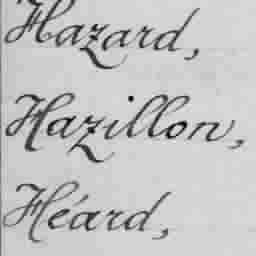 Hazard,
Hazillon,
Héard,